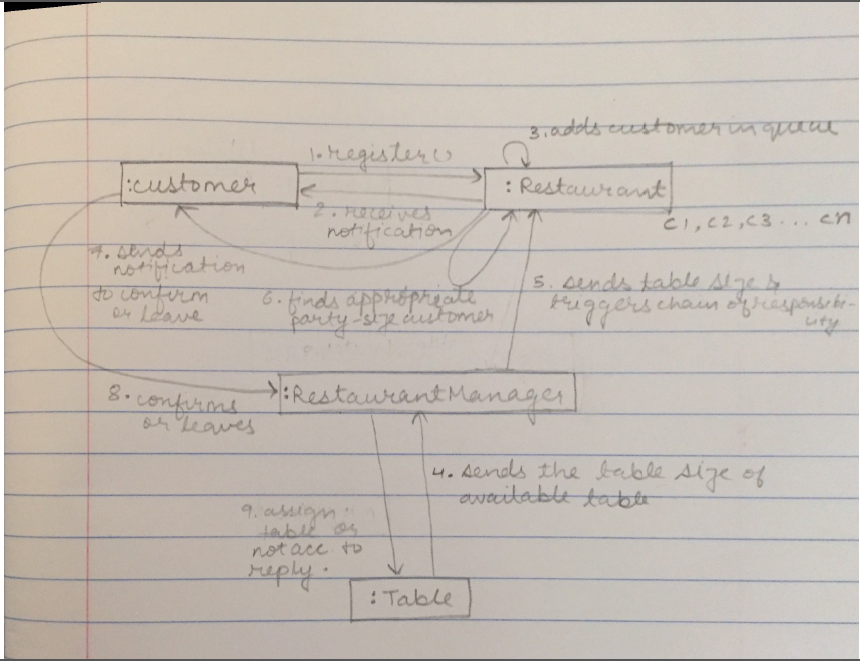 3. adds customer in queue
1. register()
:customer
: Restaurant
2. receives
notification
c1, c2, c3 ... cn
7. sends
notification
to confirm
or leave
6. finds appropriate
party-size customer
5. sends table size &
triggers chain of responsibi-
lity
:RestaurantManager
8. confirms
or leaves
4. sends the table size of
available table
9. assign
table or
not acc to
reply.
:Table